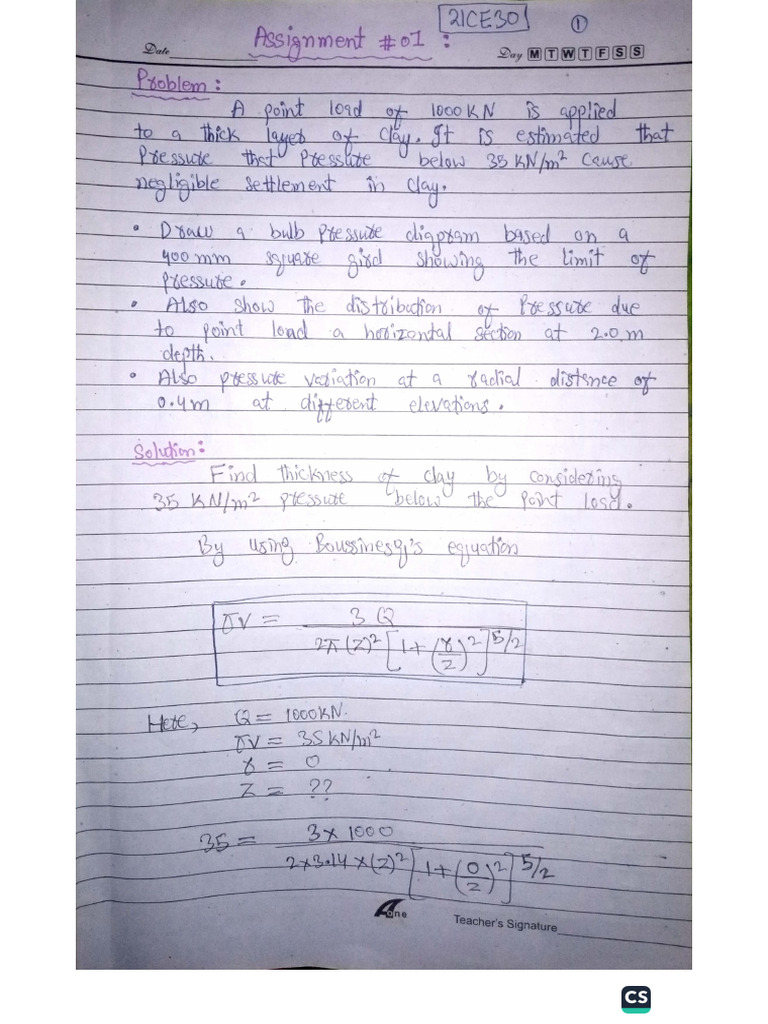 21CE30
①
Assignment #01 :
Date
Day M T W T F S S
Problem:
A point load of 1000KN is applied
to a thick layer of clay. It is estimated that
pressure that pressure below 35 KN/m² cause
negligible settlement in clay.
• Draw a bulb pressure diagram based on a
400mm square gird showing the limit of
pressure.
• Also show the distribution of pressure due
to point load a horizontal section at 2.0.m
depth.
• Also pressure variation at a radial distance of
0.4m at different elevations.
Solution:
Find thickness of clay by considering
35 KN/m² pressure below the point load.
By using Boussinesq's equation
σv = 3Q / 2π(Z)² [1+(r/z)²]^5/2
Here, Q = 1000KN.
σv = 35KN/m²
r = 0
Z = ??
35 = 3 x 1000 / 2x3.14x(Z)² [1+(0/z)²]^5/2
Aone
Teacher's Signature
CS